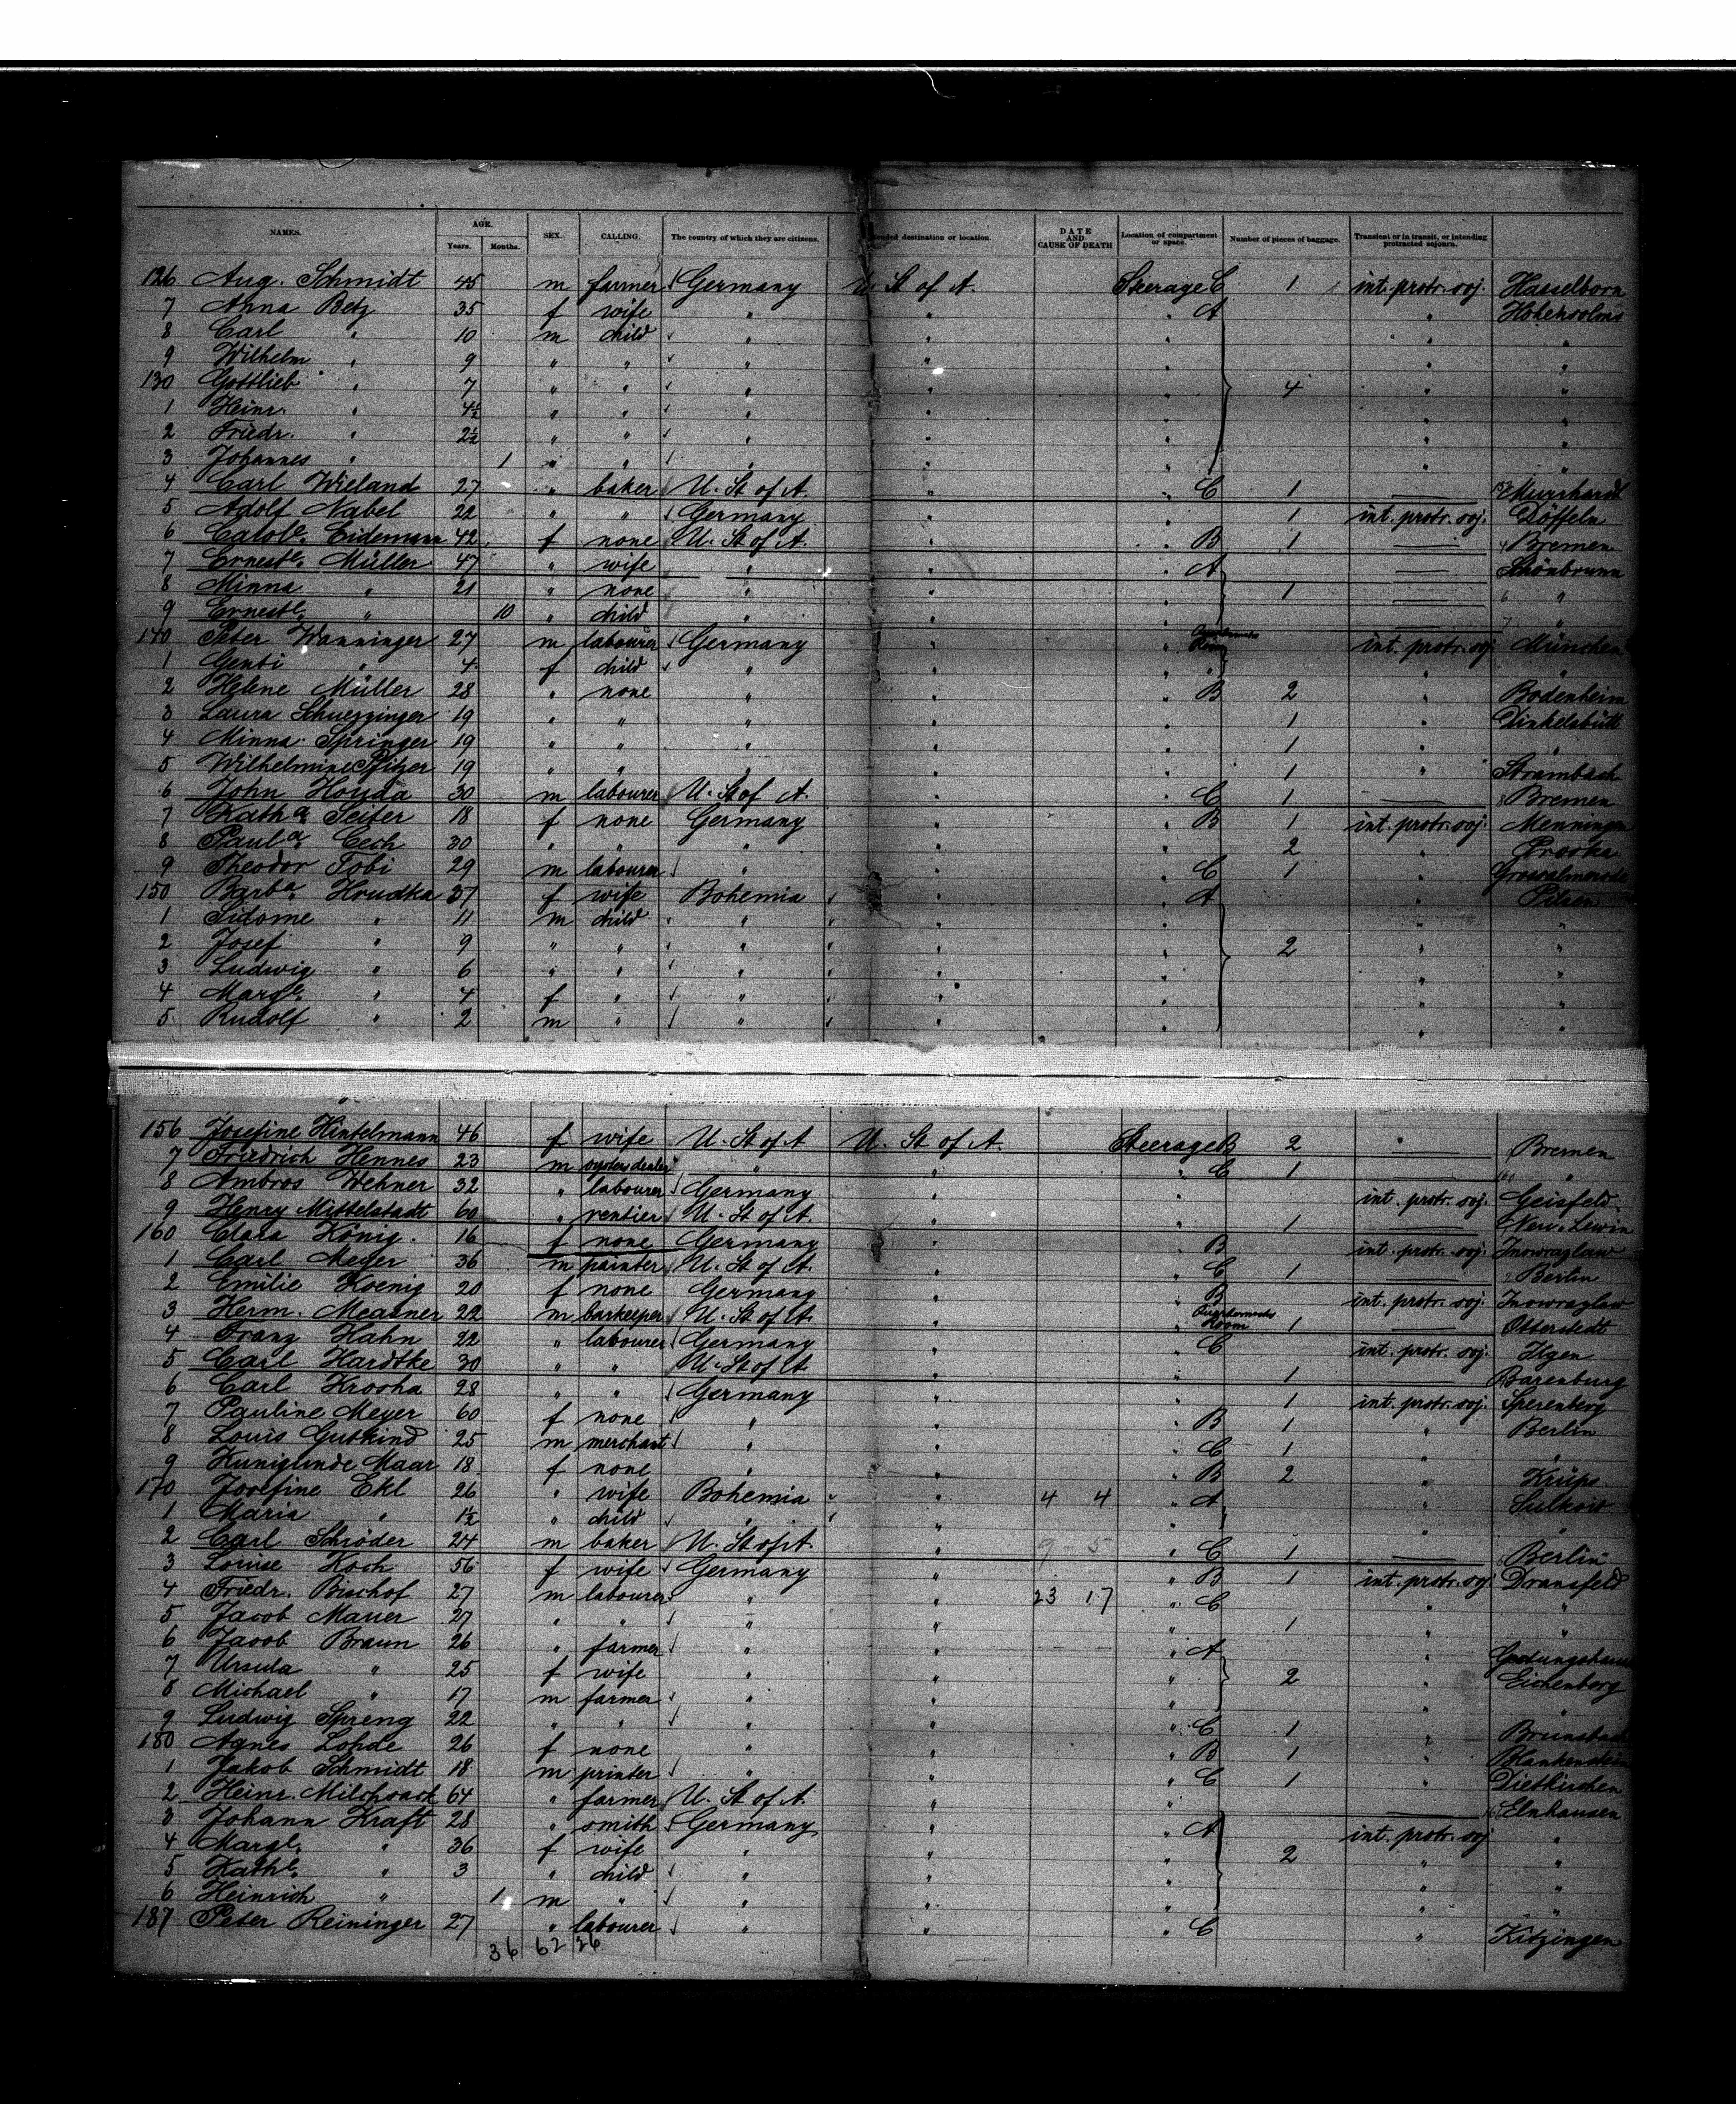 NAMES. AGE. Years. Months. SEX. CALLING. The country of which they are citizens. ded destination or location. DATE AND CAUSE OF DEATH Location of compartment or space. Number of pieces of baggage. Transient or in transit, or intending protracted sojourn.
126 Aug. Schmidt 45 m farmer Germany U. St of A. Steerage C 1 int. protr. soj. Hasselborn
7 Anna Betz 35 f wife " " " A " Hohensolms
8 Carl " 10 m child " " " " "
9 Wilhelm " 9 " " " " " " "
130 Gottlieb " 7 " " " " " 4 " "
1 Heinr. " 4½ " " " " " " "
2 Friedr. " 2½ " " " " " " "
3 Johannes " 1 " " " " " " "
4 Carl Wieland 27 " baker U. St of A. " " C 1 — Murrhardt
5 Adolf Nabel 22 " " Germany " " 1 int. protr. soj. Döffeln
6 Carole. Eidemann 42 f none U. St of A. " " B 1 — 4 Bremen
7 Ernestle. Müller 47 " wife " " " A — Schönbrunn
8 Minna " 21 " none " " " 1 — 6 "
9 Ernestle. " 10 " child " " " — 7 "
140 Peter Wanninger 27 m labourer Germany " " Room int. protr. soj München
1 Genbi " 4 f child " " " " " "
2 Helene Müller 28 " none " " " B 2 " Bodenheim
3 Laura Schuezzinger 19 " " " " " 1 " Dinkelsbühl
4 Minna Springer 19 " " " " " 1 " "
5 Wilhelmine Pfitzer 19 " " " " " 1 " Strambach
6 John Houda 30 m labourer U. St of A. " " C 1 — 8 Bremen
7 Katha. Seiter 18 f none Germany " " B 1 int. protr. soj. Menningen
8 Paula. Cech 30 " " " " " 2 " Proska
9 Theodor Tobi 29 m labourer " " " C 1 " Grossalmerode
150 Barba. Hrudka 37 f wife Bohemia " " A " Pilsen
1 Sidonie " 11 m child " " " " "
2 Josef " 9 " " " " " 2 " "
3 Ludwig " 6 " " " " " " "
4 Margle. " 4 f " " " " " "
5 Rudolf " 2 m " " " " " "
156 Josefine Hintelmann 46 f wife U. St of A U. St of A. Steerage B 2 — Bremen
7 Friedrich Hennes 23 m oysters dealer " " " C 1 — "
8 Ambros Wehner 32 " labourer Germany " " int. protr. soj. Geisfeld
9 Henry Mittelstadt 60 " rentier U. St of A. " " 1 — Neu-Lewin
160 Clara König. 16 f none Germany " " B int. protr. soj. Inowraglaw
1 Carl Meyer 36 m painter U. St of A. " " C 1 — 2 Berlin
2 Emilie Koenig 20 f none Germany " " B int. protr. soj. Inowraglaw
3 Herm. Measner 22 m barkeeper U. St of A. " " Room 1 — Otterstedt
4 Franz Hahn 22 " labourer Germany " " C int. protr. soj. Ilgen
5 Carl Hardtke 30 " " U. St of A " " 1 — Barenburg
6 Carl Krooha 28 " " Germany " " 1 int. protr. soj. Sperenberg
7 Pauline Meyer 60 f none " " " B 1 " Berlin
8 Louis Gutkind 25 m merchant " " " C 1 " "
9 Kunigunde Maar 18 f none " " " B 2 " Küps
170 Josefine Ekl 26 " wife Bohemia " 4 4 " A " Sulkow
1 Maria " 1½ " child " " " " "
2 Carl Schröder 24 m baker U. St of A " 9 - 5 " C 1 — Berlin
3 Louise Koch 56 f wife Germany " " B 1 int. protr. soj Dransfeld
4 Friedr. Bischof 27 m labourer " " 23 17 " C " "
5 Jacob Mauer 27 " " " " " 1 " "
6 Jacob Braun 26 " farmer " " " A "
7 Ursula " 25 f wife " " " 2 " Eichenberg
8 Michael " 17 m farmer " " " " "
9 Ludwig Spreng 22 " " " " " C 1 " Brunstadt
180 Agnes Lohde 26 f none " " " B 1 " Blankenstein
1 Jakob Schmidt 18 m printer " " " C 1 " Dietkirchen
2 Heinr. Milchsack 64 " farmer U. St of A. " " — Elnhausen
3 Johann Kraft 28 " smith Germany " " A int. protr. soj "
4 Margle. " 36 f wife " " " 2 " "
5 Kathle. " 3 " child " " " " "
6 Heinrich " 1 m " " " " " "
187 Peter Reininger 27 " labourer " " " C " Kitzingen
36 62 26